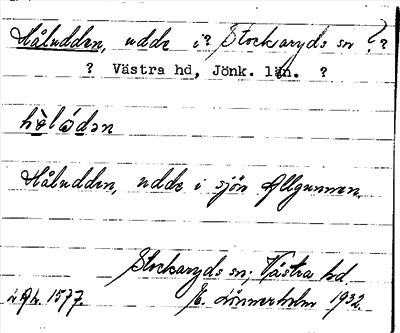 Håludden, udde i? Stockaryds sn ??
? Västra hd, Jönk. län. ?
Håludden, udde i sjön Allgunnen.
Stockaryds sn; Västra hd.
1577. E. Lönnerholm 1932.